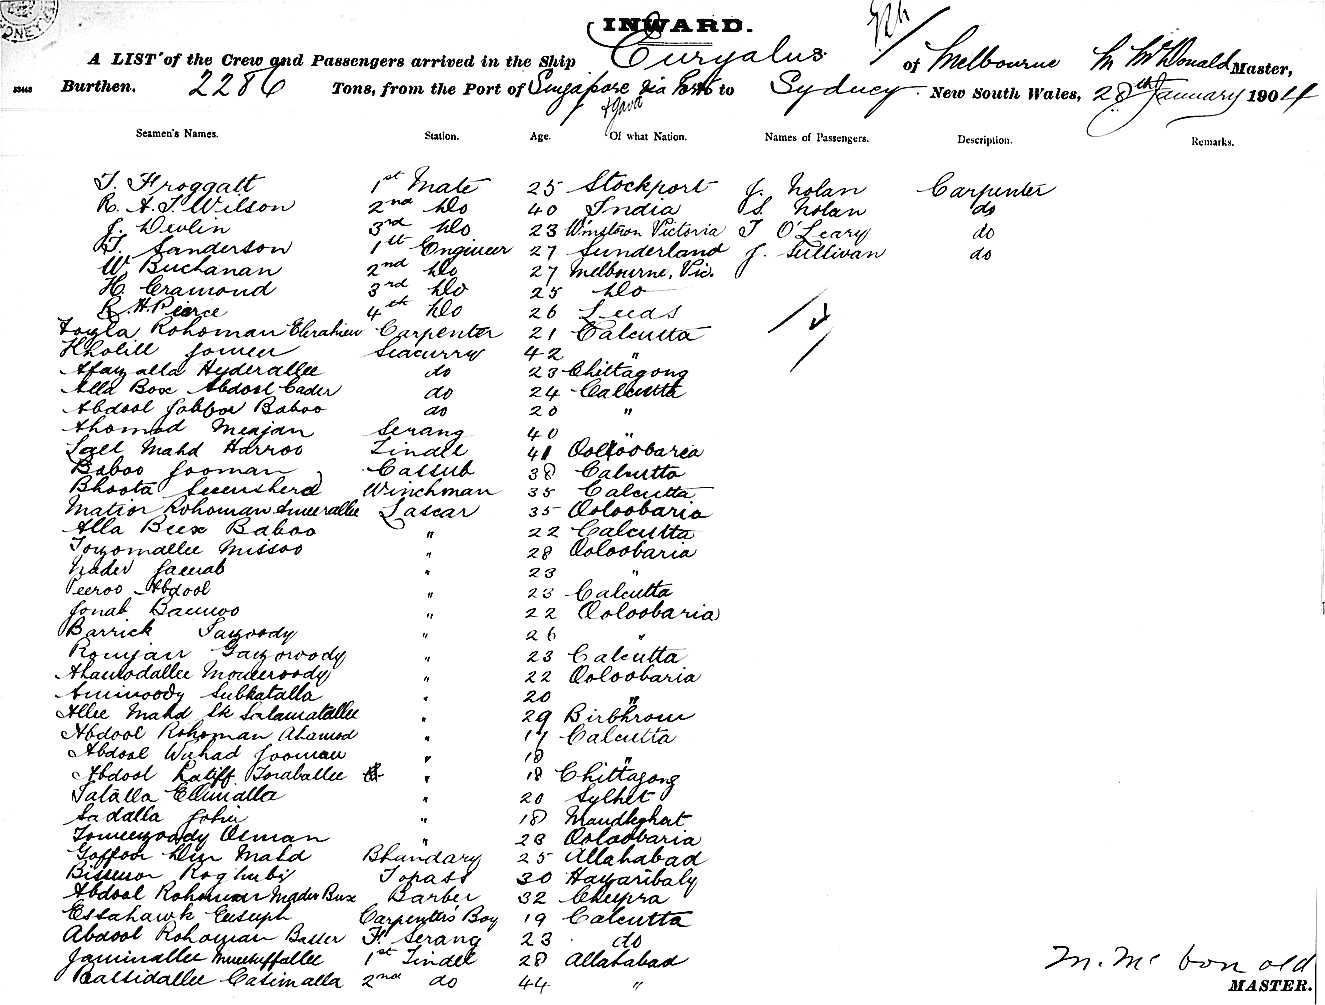 INWARD.
A LIST of the Crew and Passengers arrived in the Ship Euryalus of Melbourne M McDonald Master,
Burthen. 2286 Tons, from the Port of Singapore via Ports to Sydney New South Wales, 28th January 1904
& Java
Seamen's Names. Station. Age. Of what Nation. Names of Passengers. Description. Remarks.
T. Froggatt 1st Mate 25 Stockport J. Nolan Carpenter
R. A. T. Wilson 2nd Do 40 India S. Nolan do
J. Devlin 3rd Do 23 Victoria T O'Leary do
Sanderson 1st Engineer 27 Sunderland J. Sullivan do
W. Buchanan 2nd Do 27 Melbourne, Vic.
H. Cramond 3rd Do 25 Do
R. H. Pierce 4th Do 26 Leeds
Rohoman Carpenter 21 Calcutta
Seacunny 42 "
Hyderallee do 23 Chittagong
Alla Box Abdool Cader do 24 Calcutta
Abdool Jabbor Baboo do 20 "
Ahomad Meajan Serang 40 "
Mahd Harroo Tindel 41 Ooloobaria
Baboo Jooman Cassub 38 Calcutta
Bhoota Winchman 35 Calcutta
Rohoman Ameerallee Lascar 35 Ooloobaria
Alla Bux Baboo " 22 Calcutta
Missoo " 28 Ooloobaria
Nader " 23 "
Peeroo Abdool " 23 Calcutta
Jonab " 22 Ooloobaria
Barrick " 26 "
Romjan " 23 Calcutta
Ahamodallee " 22 Ooloobaria
" 20 "
Allee Mahd Sk Salamatallee " 29 Birbhroom
Abdool Rohoman Ahamod " 19 Calcutta
Abdool Wahad Jooman " 18 "
Abdool Latiff Toraballee " 18 Chittagong
" 20 Sylhet
Sadalla " 18
Osman " 23 Ooloobaria
Goffoor Mahd Bhundary 25 Allahabad
Topass 30 Hazaribaly
Abdool Rohoman Nader Bux Barber 32 Chupra
Essahawk Eusuph Carpenter's Boy 19 Calcutta
Abdool Rohoman F. Serang 23 do
1st Tindel 28 Allahabad
Casimalla 2nd do 44 "
M. McDonald
MASTER.